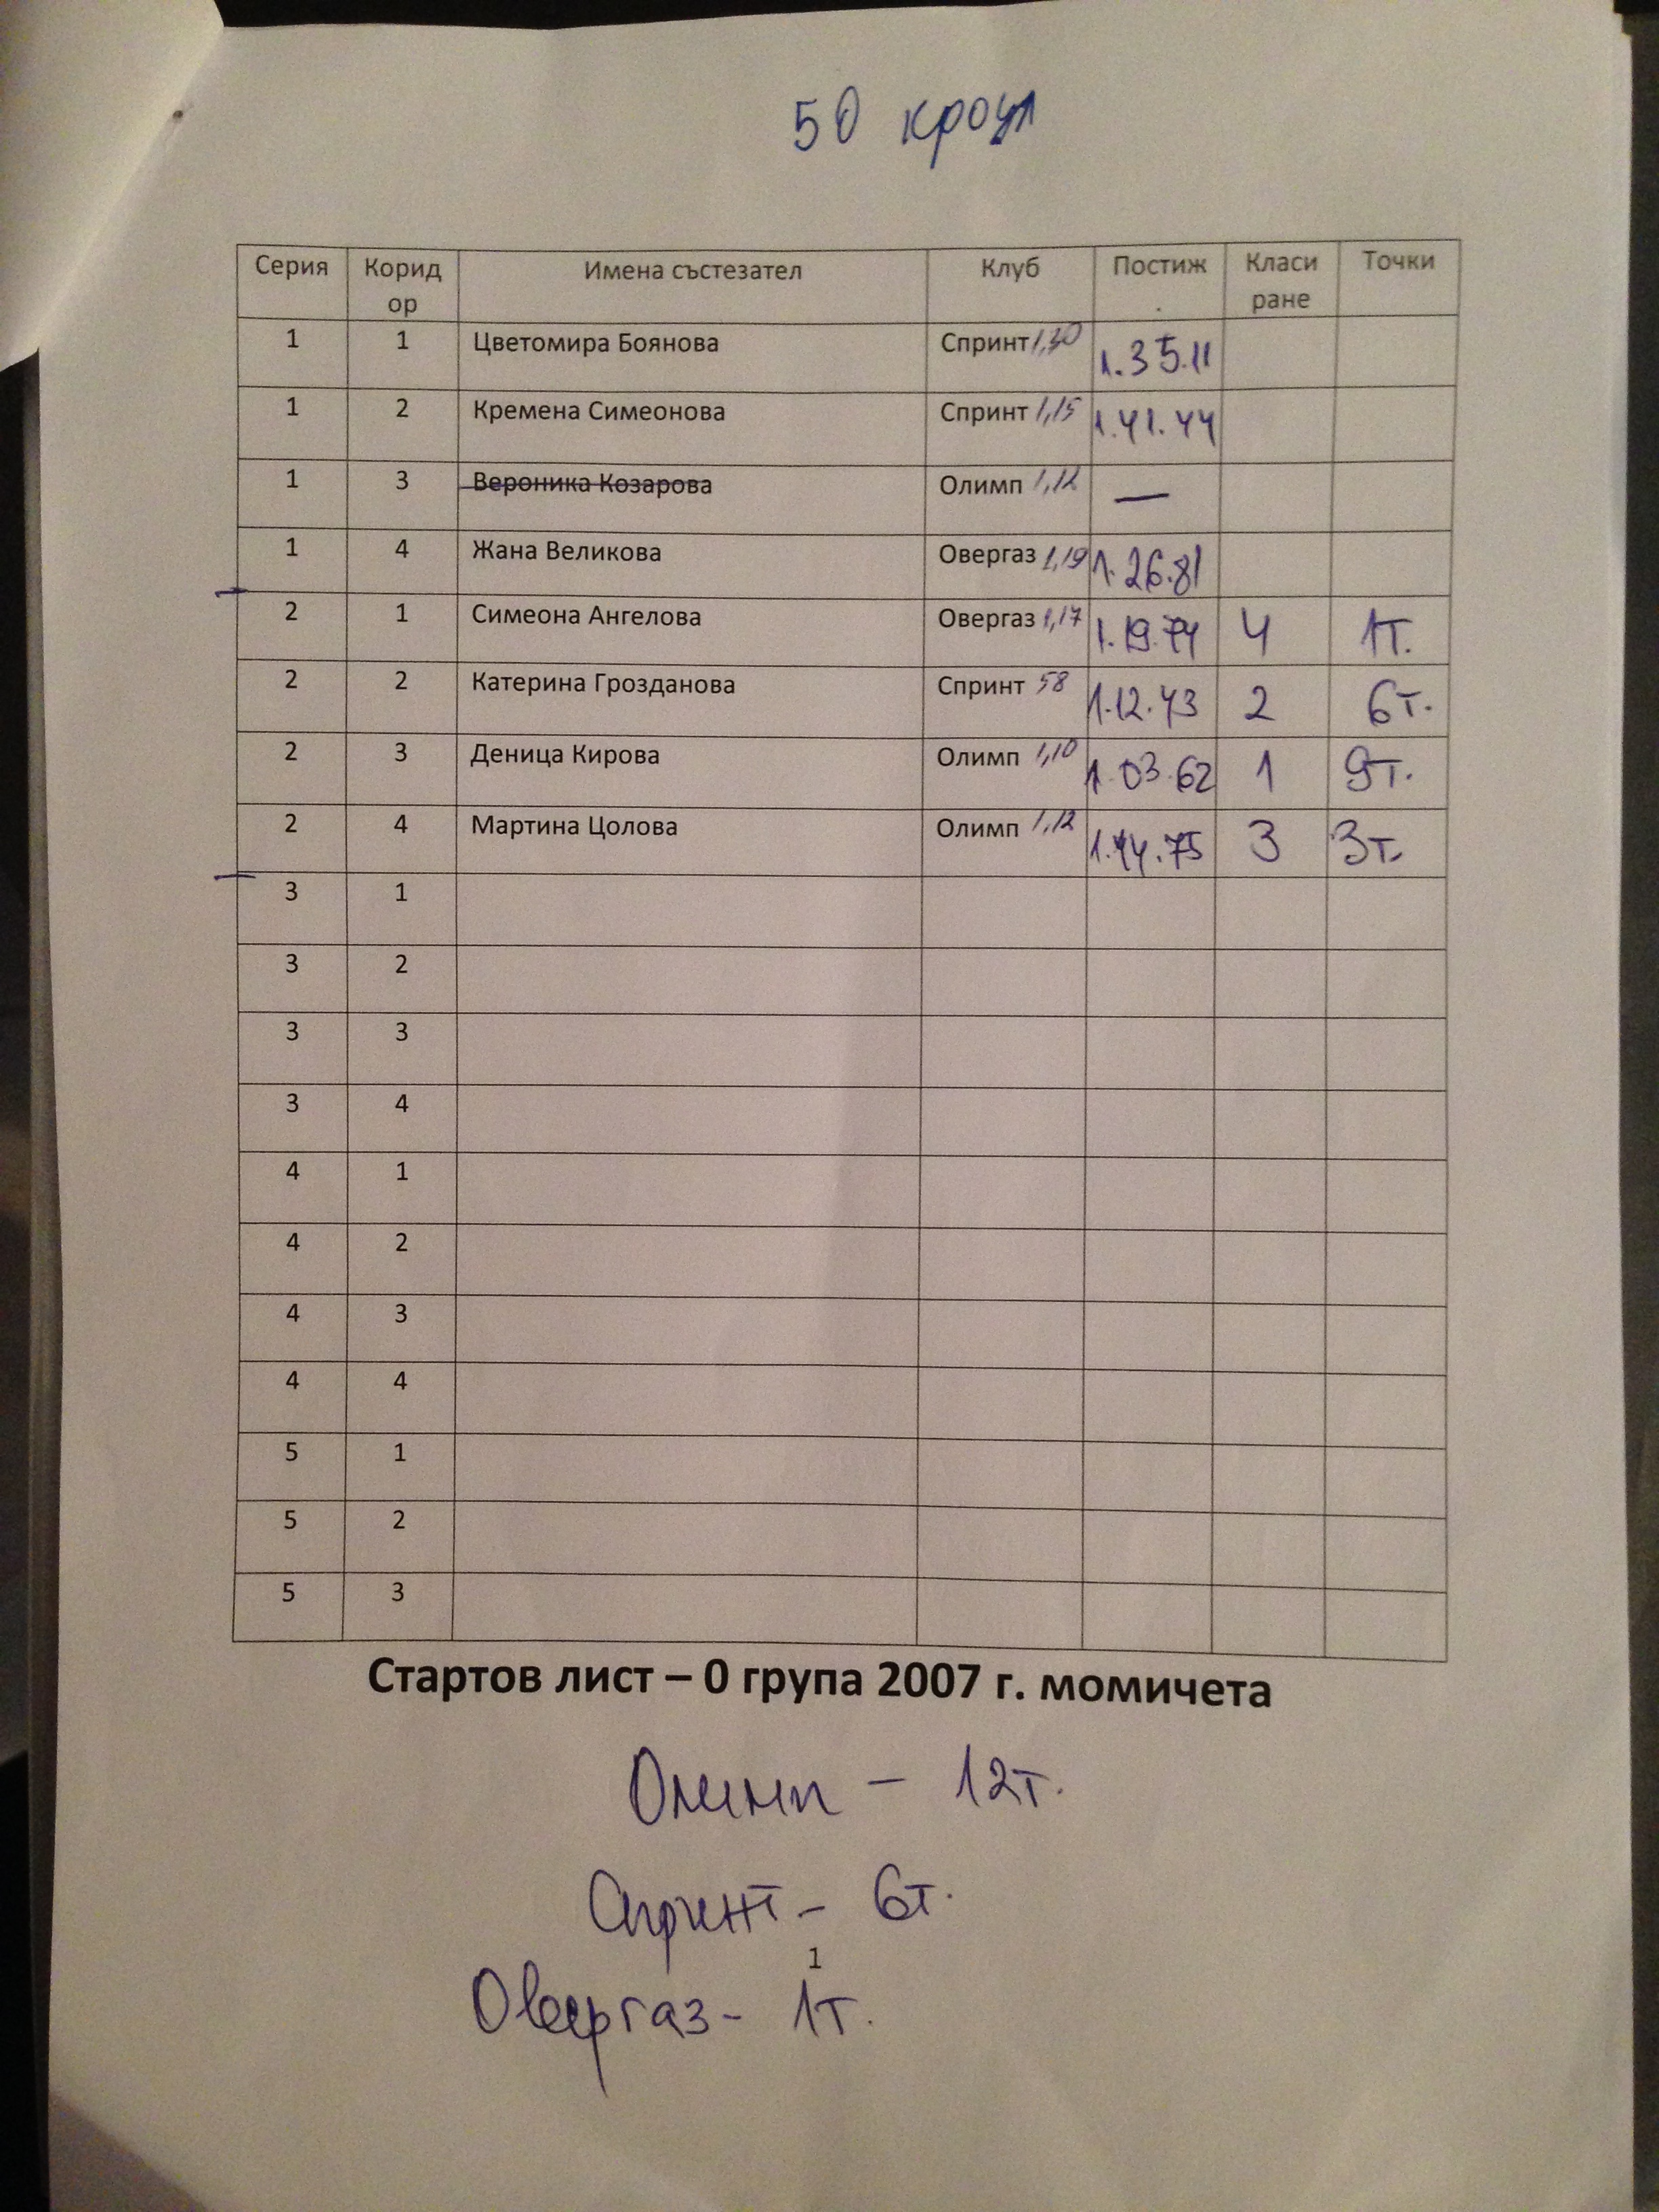 50 кроул
Серия Коридор Имена състезател Клуб Постиж. Класиране Точки
1 1 Цветомира Боянова Спринт 1,30 1.35.11
1 2 Кремена Симеонова Спринт 1,15 1.41.44
1 3 Вероника Козарова Олимп 1,12 —
1 4 Жана Великова Овергаз 1,19 1.26.81
2 1 Симеона Ангелова Овергаз 1,17 1.19.74 4 1т.
2 2 Катерина Грозданова Спринт 58 1.12.43 2 6т.
2 3 Деница Кирова Олимп 1,10 1.03.62 1 9т.
2 4 Мартина Цолова Олимп 1,12 1.14.75 3 3т.
3 1
3 2
3 3
3 4
4 1
4 2
4 3
4 4
5 1
5 2
5 3
Стартов лист – 0 група 2007 г. момичета
Олимп – 12т.
Спринт – 6т.
1
Овергаз - 1т.